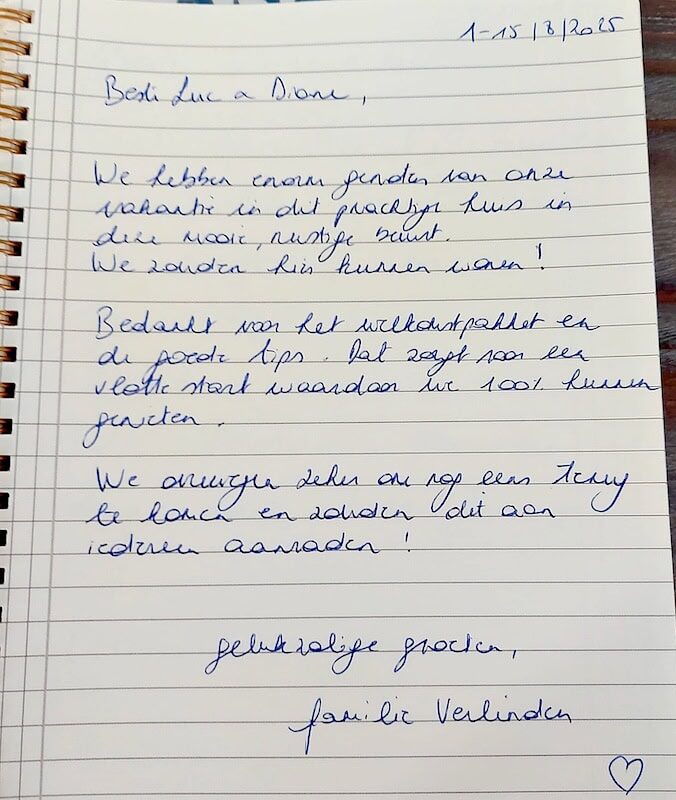 1-15/8/2025
Beste Luc en Diane,
We hebben enorm genoten van onze
vakantie in dit prachtige huis in
deze mooie, rustige buurt.
We zouden hier kunnen wonen!
Bedankt voor het welkomstpakket en
de goede tips. Dat zorgt voor een
vlotte start waardoor we 100% kunnen
genieten.
We overwegen zeker om nog eens terug
te komen en zouden dit aan
iedereen aanraden!
gelukzalige groeten,
familie Verlinden